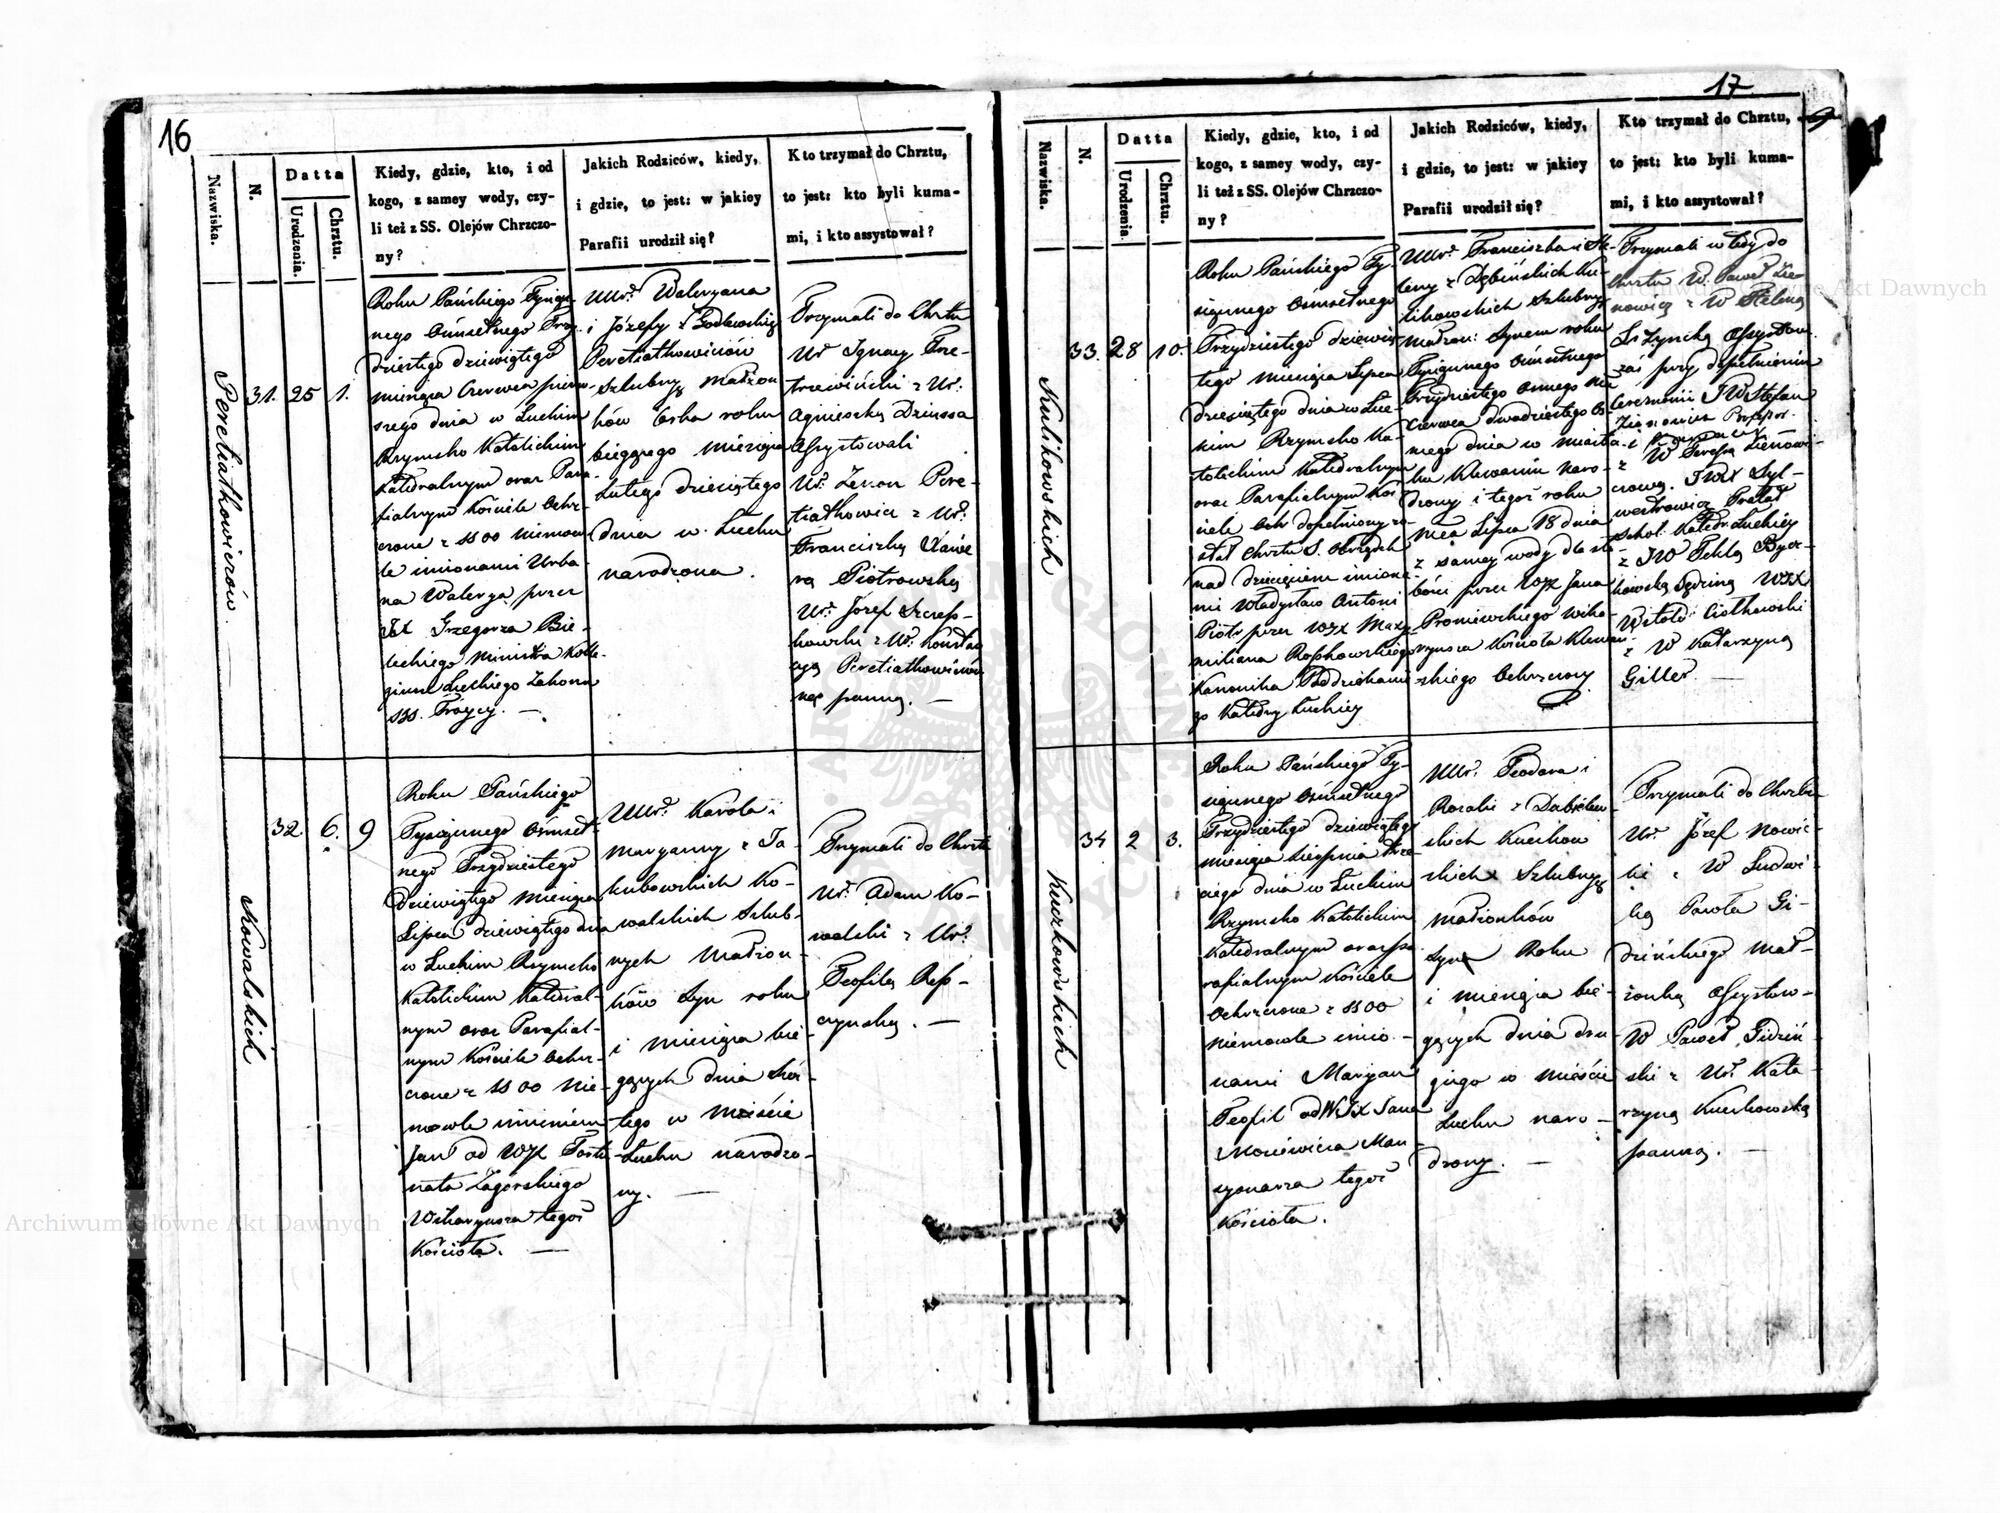 16
Nazwiska.
N.
Datta
Urodzenia.
Chrztu.
Kiedy, gdzie, kto, i od
kogo, z samey wody, czy-
li też z SS. Olejów Chrzczo-
ny?
Jakich Rodziców, kiedy,
i gdzie, to jest: w jakiey
Parafii urodził się?
Kto trzymał do Chrztu,
to jest: kto byli kuma-
mi, i kto assystował?
Peretiatkowiczów
31.
25
1.
Roku Pańskiego Tysiącz-
nego Ośmsetnego Trzy-
dziestego dziewiątego
miesiąca Czerwca pierw-
szego dnia w Łuckim
Rzymsko Katolickim
Katedralnym oraz Para-
fialnym Kościele Ochrz-
czone z SS OO niemow-
le imionami Urba-
na Walerya przez
JX Grzegorza Bie-
leckiego Ministra Kolle-
gium Łuckiego Zakonu
SSS. Trójcy. —
Ww. Waleryana
i Józefy z Godlewskich
Peretiatkowiczów
Szlubnych małżon
ków Córka roku
bieżącego miesiąca
Lutego dziesiątego
dnia w Łucku
narodzona.
Trzymali do Chrztu
Ur Ignacy Trze-
trzewiński z Ur:
Agnieszką Dziussa
Assystowali
Ur. Zenon Pere-
tiatkowicz z Ur:
Franciszką Xawe
rą Piotrowską
Ur: Józef Szczep-
kowski z Ur: Konstan
cyą Peretiatkowiczów
ną panną. —
Kowalskich
32.
6.
9
Roku Pańskiego
Tysiącznego Ośmset-
nego Trzydziestego
Dziewiątego miesiąca
Lipca dziewiątego dnia
w Łuckim Rzymsko
Katolickim Katedral-
nym oraz Parafial-
nym Kościele Ochrz-
czone z SS OO nie-
mowle imieniem
Jan od WJX Fortu-
nata Zagorskiego
Wikaryusza tegoż
Kościoła. —
Ww. Karola i
Maryanny z Ja-
kubowskich Ko-
walskich Szlub-
nych Małżon-
ków Syn roku
i miesiąca bie-
żących dnia szós-
tego w mieście
Łucku narodzo-
ny. —
Trzymali do Chrztu
Ur. Adam Ko-
walski z Ur.
Teofilą Rep-
czynską. —
17
Nazwiska.
N.
Datta
Urodzenia.
Chrztu.
Kiedy, gdzie, kto, i od
kogo, z samey wody, czy-
li też z SS. Olejów Chrzczo-
ny?
Jakich Rodziców, kiedy,
i gdzie, to jest: w jakiey
Parafii urodził się?
Kto trzymał do Chrztu,
to jest: kto byli kuma-
mi, i kto assystował?
Kulikowskich
33.
28
10.
Roku Pańskiego Ty-
siącznego Ośmsetnego
Trzydziestego dziewią
tego miesiąca Lipca
dziesiątego dnia w Łuc-
kim Rzymsko Ka-
tolickim Katedralnym
oraz Parafialnym Koś-
ciele dopełniony zo-
stał Chrztu S. obrządek
nad dziecięciem imiona-
mi Władysław Antoni
Piotr przez WJX Maxy-
miliana Roszkowskiego
Kanonika Poddziekanie-
go Katedry Łuckiey
Ww. Franciszka i He-
leny z Dębińskich Ku-
likowskich Szlubnych
małżon: Synem roku
Tysiącznego Ośmsetnego
Trzydziestego Osmego Mca
Czerwca dwadziestego Os-
mego dnia w miastecz-
ku Klewaniu naro-
dzony i tegoż roku
mca Lipca 18 dnia
z samey wody dla sła-
bości przez WJX Jana
Proniewskiego wika-
ryusza Kościoła Klewan-
skiego Ochrzczony
Trzymali wtedy do
Chrztu W. Paweł Zie-
nowicz z W
assystowa
zaś przy dopełnieniu
Ceremonii JW Stefan
Zienowicz
z W Teressą Zienowi-
czową. JWX Syl-
westrowicz Prałat
Schol. Katedr. Łuckiey
z JW Teklą Bycz-
kowską Sędziną WJX
Witold Ciotkowski
z W Katarzyną
Giller. —
Kuczkowskich
34
2
3.
Roku Pańskiego Ty-
siącznego Ośmsetnego
Trzydziestego dziewiątego
miesiąca Sierpnia trze-
ciego dnia w Łuckim
Rzymsko Katolickim
Katedralnym oraz Pa-
rafialnym Kościele
Ochrzczone z SS OO
niemowle imio-
nami Maryan
Teofil od WJX Jana
Moniewicza Man-
syonarza tegoż
Kościoła.
Ww. Teodora i
Rozalii z
skich Kuczkow
skich Szlubnych
małżonków
Syn Roku
i miesiąca bie-
żących dnia dru
giego w mieście
Łucku naro-
dzony. —
Trzymali do Chrztu
Ur. Józef Nowic-
ki z W Ludwi-
ką Pawła Gi-
dzińskiego mał-
żonką Assystow-
W Paweł Gidziń-
ski z Ur. Kata-
rzyną Kuczkowską
panną. —
Archiwum Główne Akt Dawnych
Archiwum Główne Akt Dawnych